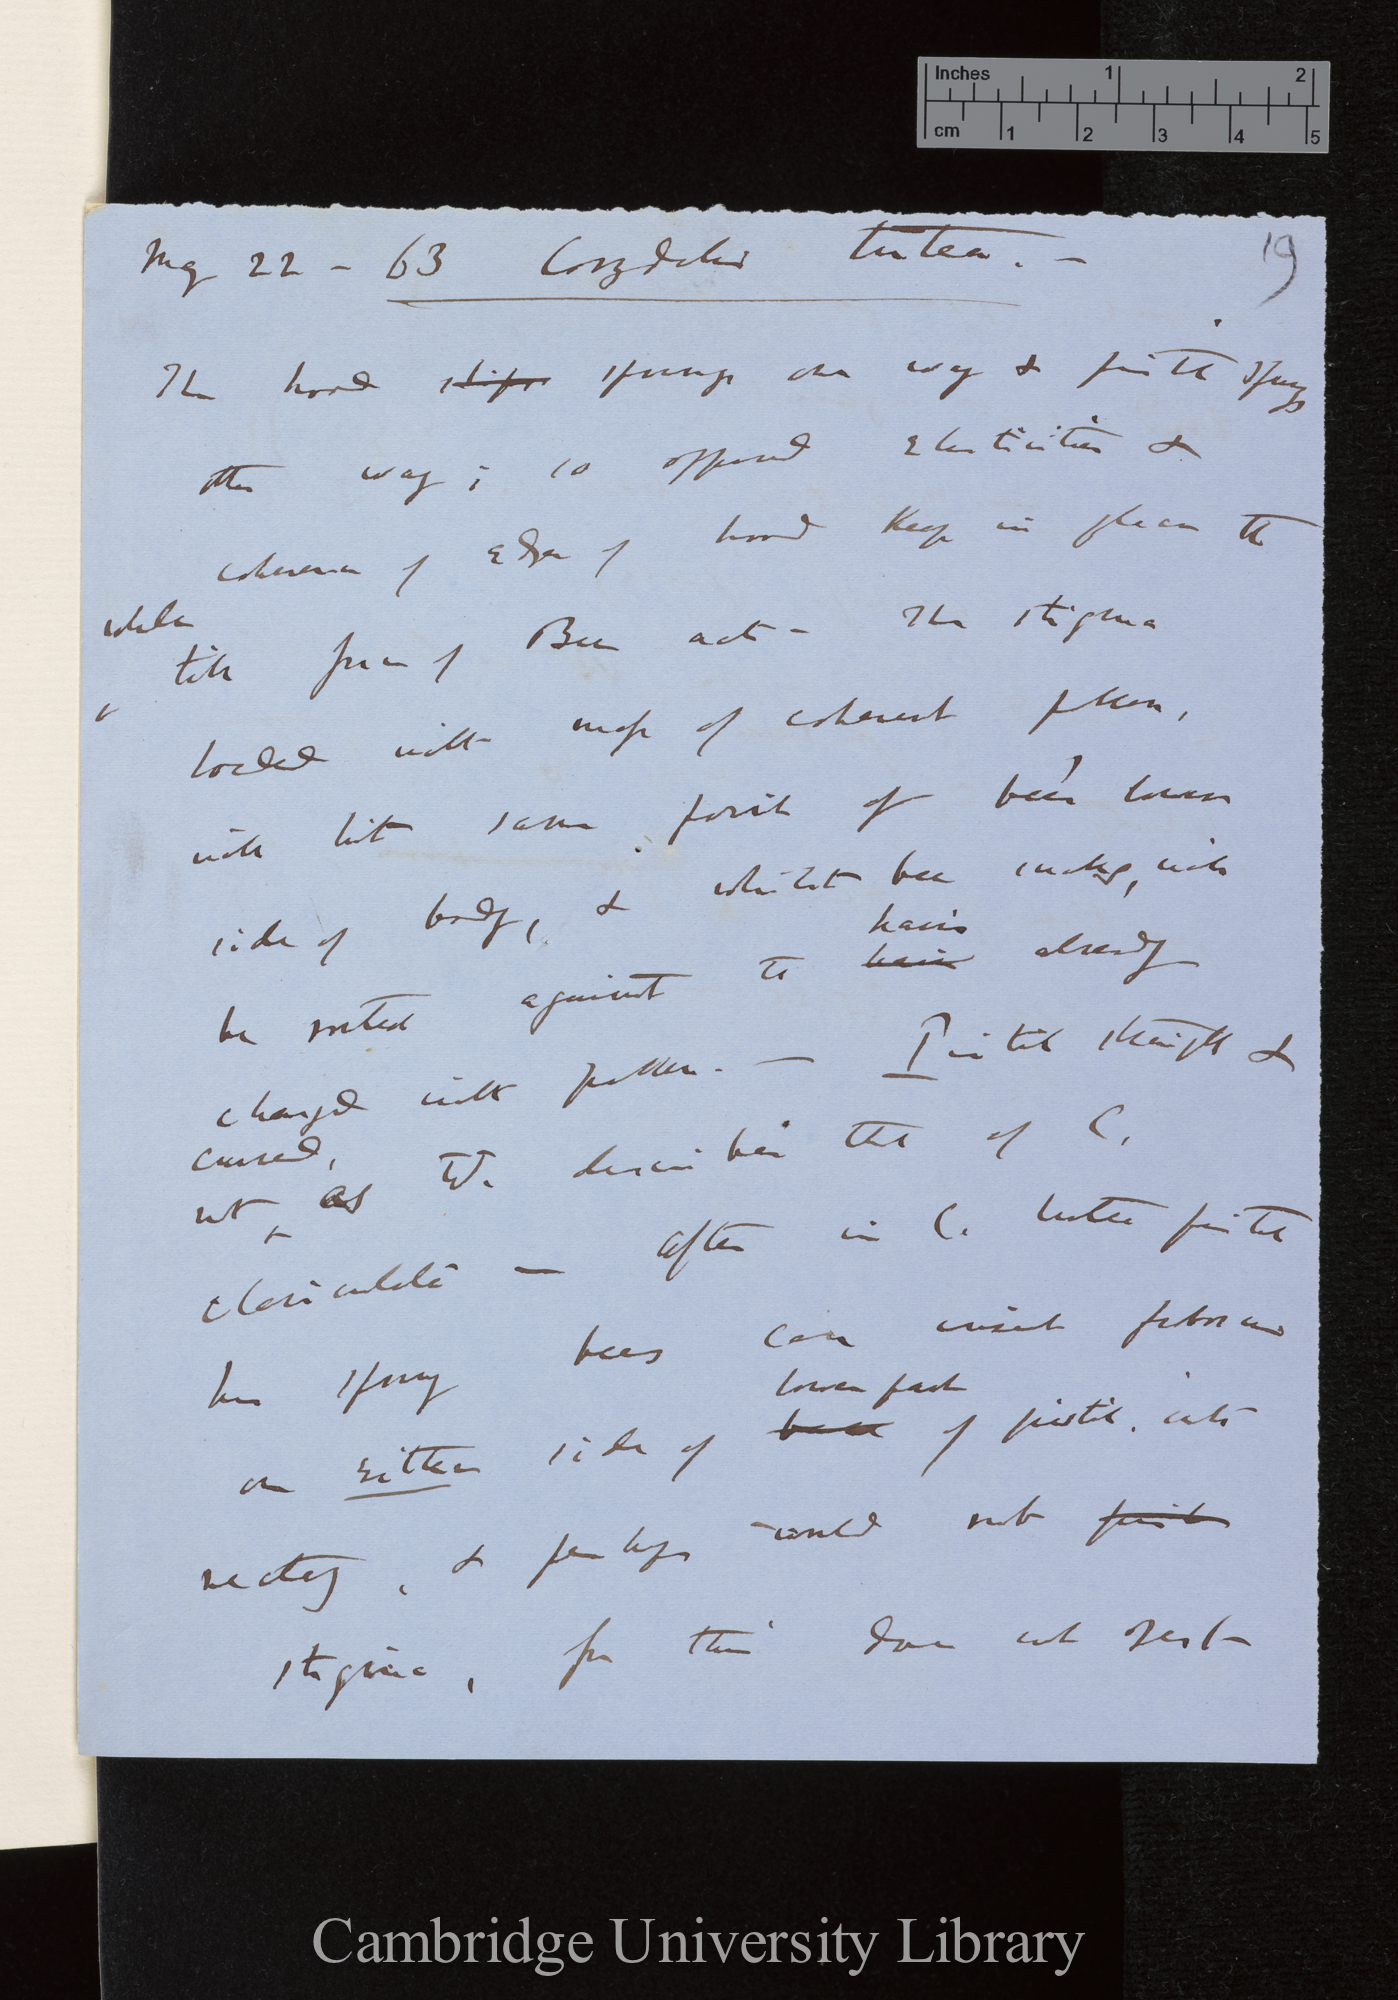 Inches 1 2
cm 1 2 3 4 5
19
May 22 - 63 Corydalis lutea. —
The hood slips springs one way & pistil springs
other way; so opposed elasticities &
coherence of edges of hood keep in place the
whole
till force of Bee acts — The stigma
loaded with mass of coherent pollen,
will hit same point of bee's lower
side of body, & whilst bee sucking, will
hairs
be rubbed against the hairs already
charged with pollen. — Pistil straight &
curved,
not as W. describes that of C.
claviculata — After in C. lutea pistil
has sprung bees can insert proboscis
lower part
on either side of base of pistil. into
nectary, & perhaps would not
stigma, for this does not rest
Cambridge University Library